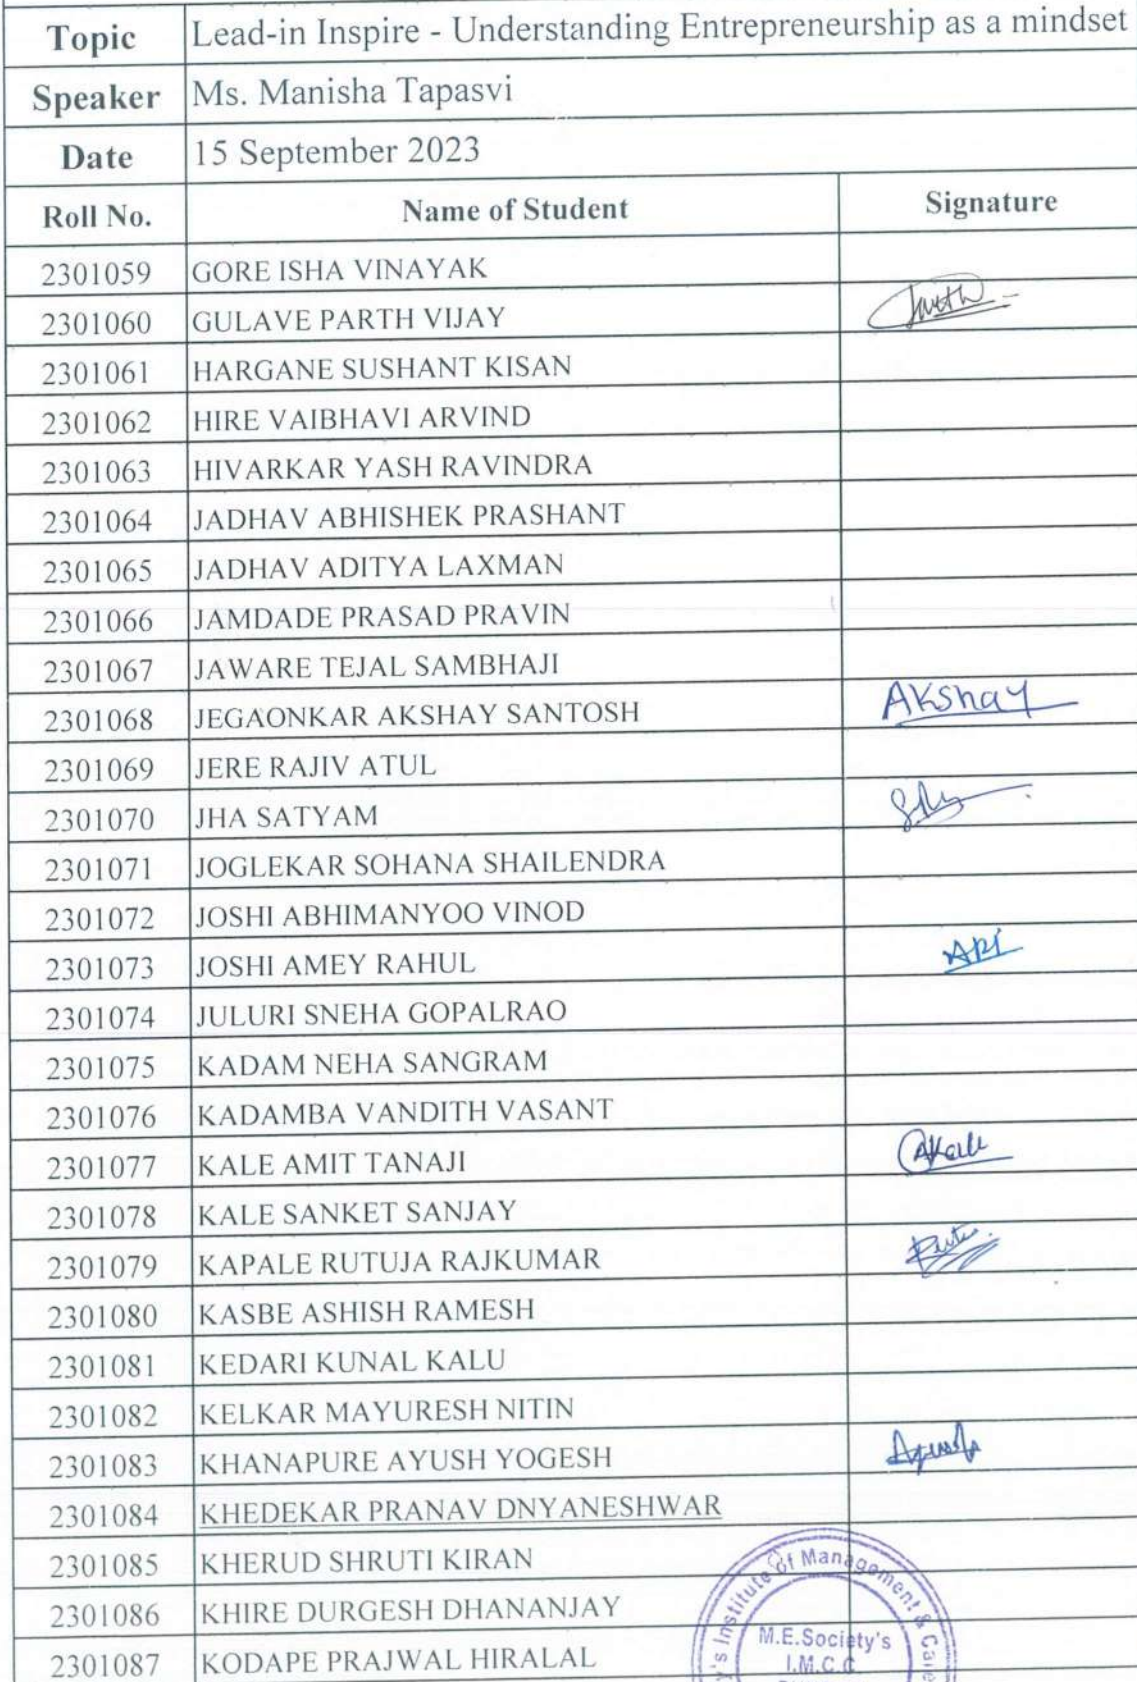 Topic Lead-in Inspire - Understanding Entrepreneurship as a mindset
Speaker Ms. Manisha Tapasvi
Date 15 September 2023
Roll No. Name of Student Signature
2301059 GORE ISHA VINAYAK
2301060 GULAVE PARTH VIJAY
2301061 HARGANE SUSHANT KISAN
2301062 HIRE VAIBHAVI ARVIND
2301063 HIVARKAR YASH RAVINDRA
2301064 JADHAV ABHISHEK PRASHANT
2301065 JADHAV ADITYA LAXMAN
2301066 JAMDADE PRASAD PRAVIN
2301067 JAWARE TEJAL SAMBHAJI
2301068 JEGAONKAR AKSHAY SANTOSH AKshay
2301069 JERE RAJIV ATUL
2301070 JHA SATYAM
2301071 JOGLEKAR SOHANA SHAILENDRA
2301072 JOSHI ABHIMANYOO VINOD
2301073 JOSHI AMEY RAHUL
2301074 JULURI SNEHA GOPALRAO
2301075 KADAM NEHA SANGRAM
2301076 KADAMBA VANDITH VASANT
2301077 KALE AMIT TANAJI AKale
2301078 KALE SANKET SANJAY
2301079 KAPALE RUTUJA RAJKUMAR
2301080 KASBE ASHISH RAMESH
2301081 KEDARI KUNAL KALU
2301082 KELKAR MAYURESH NITIN
2301083 KHANAPURE AYUSH YOGESH
2301084 KHEDEKAR PRANAV DNYANESHWAR
2301085 KHERUD SHRUTI KIRAN
2301086 KHIRE DURGESH DHANANJAY
2301087 KODAPE PRAJWAL HIRALAL
Institute of Management &
M.E.Society's
I.M.C.C.